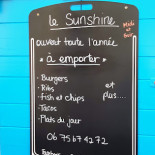 le Sunshine
Midi et Soir
ouvert toute l'année
* à emporter *
- Burgers
- Ribs
- fish et chips
- Tacos
- Plats du jour
et plus....
06 75 67 42 72